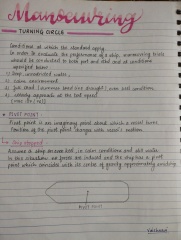 Manoeuvring
TURNING CIRCLE
Conditions at which the standard apply
In order to evaluate the performance of a ship, manoeuvring trials
should be conducted to both port and stbd and at conditions
specified below:
1) deep, unrestricted water.
2) calm environment.
3) full load (summer load line draught), even keel condition.
4) steady approach at the test speed.
PIVOT POINT
Pivot point is an imaginary point about which a vessel turns
Position of the pivot point changes with vessel's motion.
Ship stopped
Assume a ship on even keel, in calm conditions and still water
In this situation no forces are induced and the ship has a pivot
point which coincides with its centre of gravity approximately amidship.
PIVOT POINT